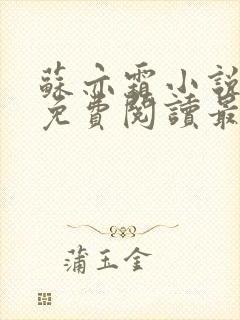 蘇亦霜小說
免費閱讀最
蒲玉金